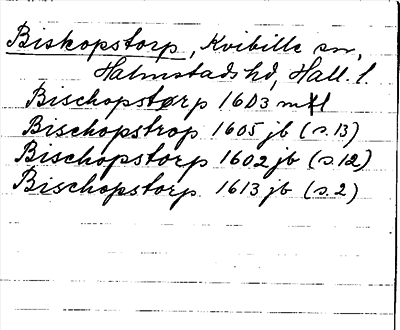 Biskopstorp, Kvibille sn,
Halmstads hd, Hall. l.
Bischopstørp 1603 mtl
Bischopstrop 1605 jb (s. 13)
Bischopstorp 1602 jb (s. 12)
Bischopstorp 1613 jb (s. 2)